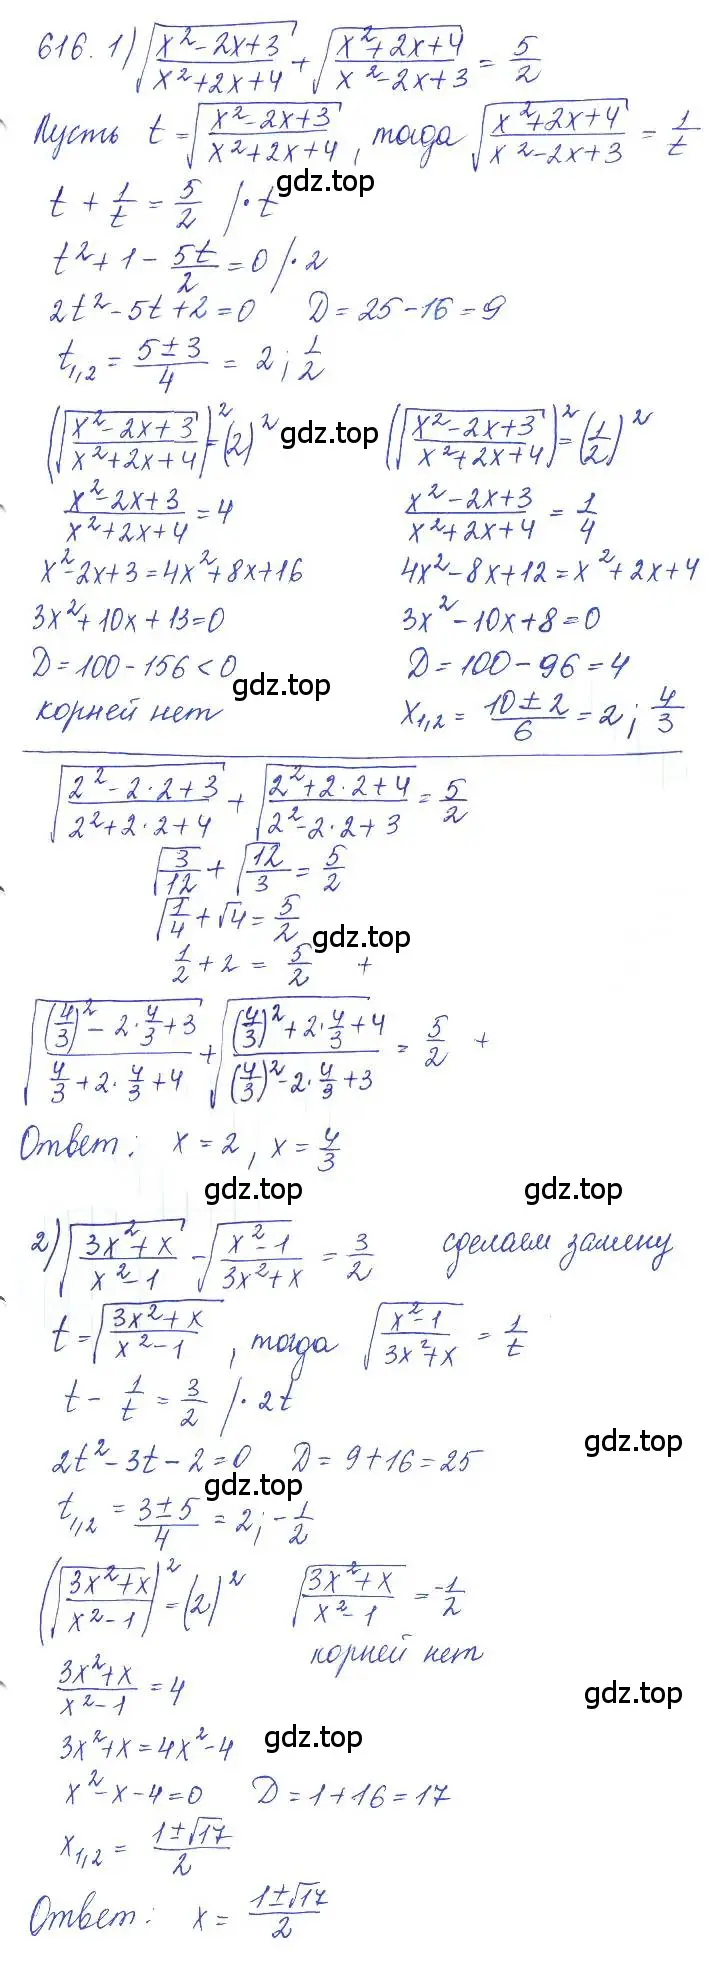 616. 1) √((x²-2x+3)/(x²+2x+4)) + √((x²+2x+4)/(x²-2x+3)) = 5/2
Пусть t = √((x²-2x+3)/(x²+2x+4)), тогда √((x²+2x+4)/(x²-2x+3)) = 1/t
gdz.top
t + 1/t = 5/2 /·t
t² + 1 - 5t/2 = 0 /·2
2t² - 5t + 2 = 0 D = 25 - 16 = 9
t₁,₂ = (5±3)/4 = 2; 1/2
(√((x²-2x+3)/(x²+2x+4)))² = (2)² gdz.top (√((x²-2x+3)/(x²+2x+4)))² = (1/2)²
(x²-2x+3)/(x²+2x+4) = 4 (x²-2x+3)/(x²+2x+4) = 1/4
x²-2x+3 = 4x²+8x+16 4x²-8x+12 = x²+2x+4
3x²+10x+13=0 3x²-10x+8=0
D = 100-156 < 0 D = 100-96 = 4
gdz.top
корней нет x₁,₂ = (10±2)/6 = 2; 4/3
√((2²-2·2+3)/(2²+2·2+4)) + √((2²+2·2+4)/(2²-2·2+3)) = 5/2
√(3/12) + √(12/3) = 5/2
√(1/4) + √4 = 5/2
gdz.top
1/2 + 2 = 5/2 +
√(((4/3)²-2·4/3+3)/(4/3+2·4/3+4)) + √(((4/3)²+2·4/3+4)/((4/3)²-2·4/3+3)) = 5/2 +
Ответ: x = 2, x = 4/3
gdz.top gdz.top
2) √((3x²+x)/(x²-1)) - √((x²-1)/(3x²+x)) = 3/2 сделаем замену
t = √((3x²+x)/(x²-1)), тогда √((x²-1)/(3x²+x)) = 1/t
t - 1/t = 3/2 /·2t
gdz.top
2t² - 3t - 2 = 0 D = 9+16 = 25
gdz.top
t₁,₂ = (3±5)/4 = 2; -1/2
(√((3x²+x)/(x²-1)))² = (2)² √((3x²+x)/(x²-1)) = -1/2
корней нет
(3x²+x)/(x²-1) = 4
gdz.top
3x²+x = 4x²-4 gdz.top
x²-x-4=0 D = 1+16 = 17
x₁,₂ = (1±√17)/2
Ответ: x = (1±√17)/2